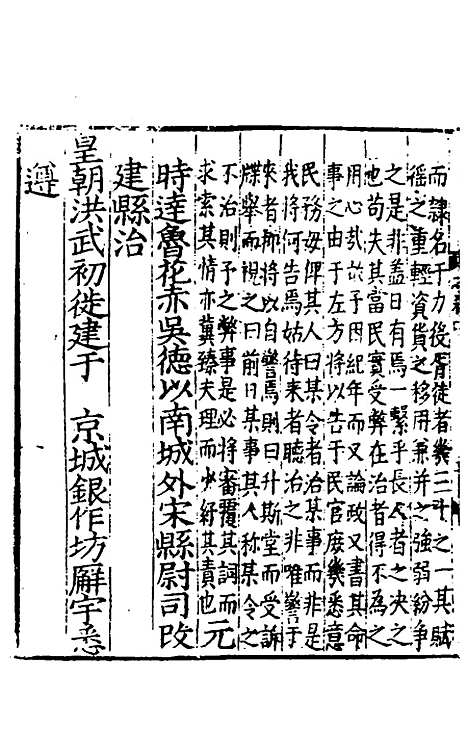 而隸名于力役胥徒者幾三十之一其賦
徭之重輕資貨之移用兼并之強弱紛爭
之是非盖日有焉一繫乎長人者之決之
也苟失其當民實受弊在治者得不為之
用心哉故予因紀年而又論政又書其命
事之由于左方將以告于民官庶幾悉意
民務毋俾其人曰某令者治某事而非是
我將何告焉姑待来者聽治之非唯警于
来者即將以自警焉則曰升斯堂而受訴
牒舉而視之曰前日某事其人称某令之
不治則予之弊事是必將審覆其詞而
求索其情亦冀臻夫理而少紓其責也元
時達魯花赤吳德以南城外宋縣尉司改
建縣治
皇朝洪武初徙建于 京城銀作坊廨宇悉
遵